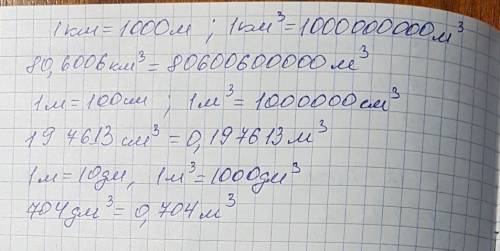 1км = 1000м ; 1км³ = 1000000000м³
80,6006км³ = 80600600000м³
1м = 100см ; 1м³ = 1000000см³
197613см³ = 0,197613м³
1м = 10дм, 1м³ = 1000дм³
704дм³ = 0,704м³